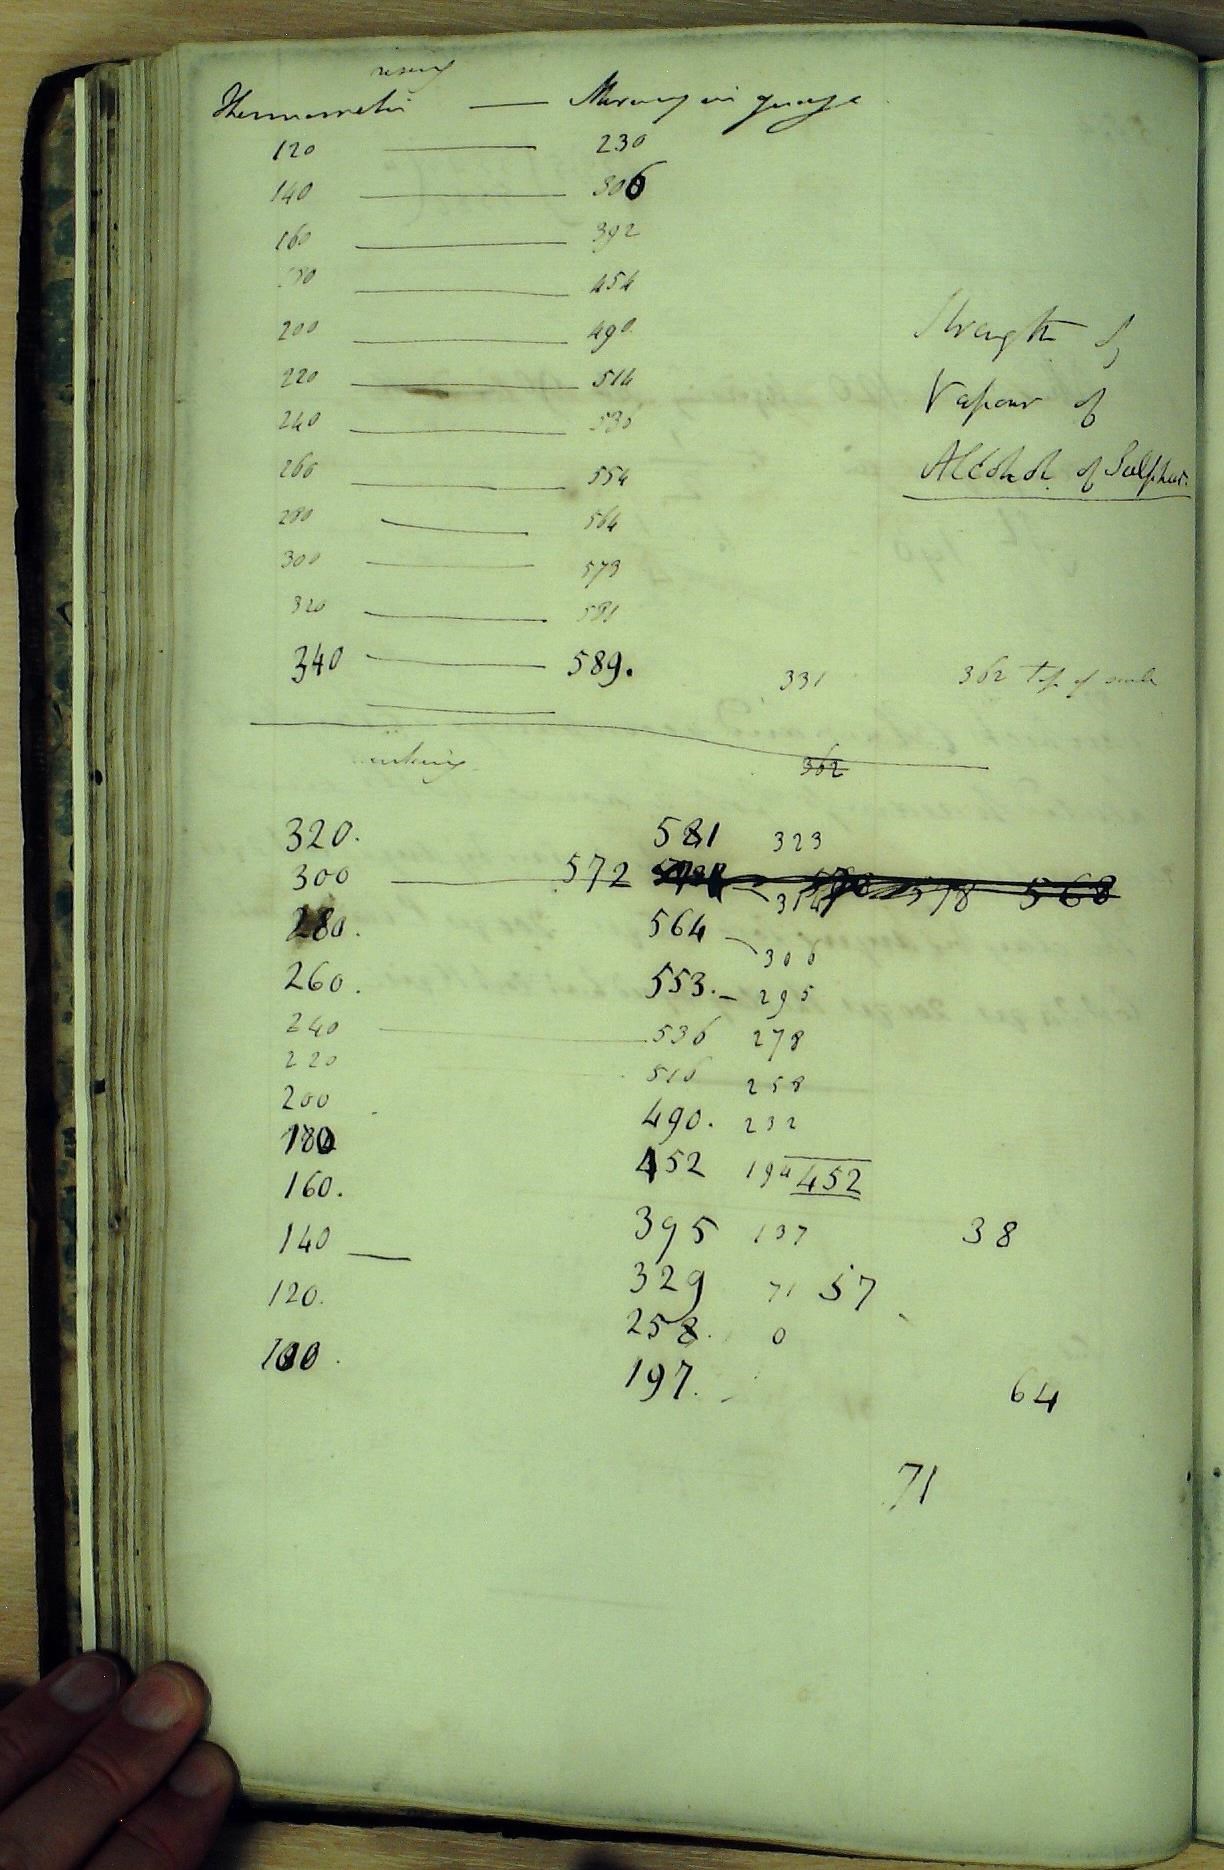 rising
Thermometer — Mercury in guage
120 — 230
140 — 306
160 — 392
180 — 454
200 — 490
220 — 514
240 — 536
260 — 554
280 — 564
300 — 573
320 — 581
340 — 589.
Strength of
Vapour of
Alcohol of Sulphur.
331 362 top of scale
sinking
362
320. 581 323
300 — 572 314 578 568
280. 564 306
260. 553. 295
240 — 536 278
220 516 258
200 490. 232
180 452 194 452
160. 395 137 38
140 — 329 71 57
120. 258. 0
100. 197.
64
71